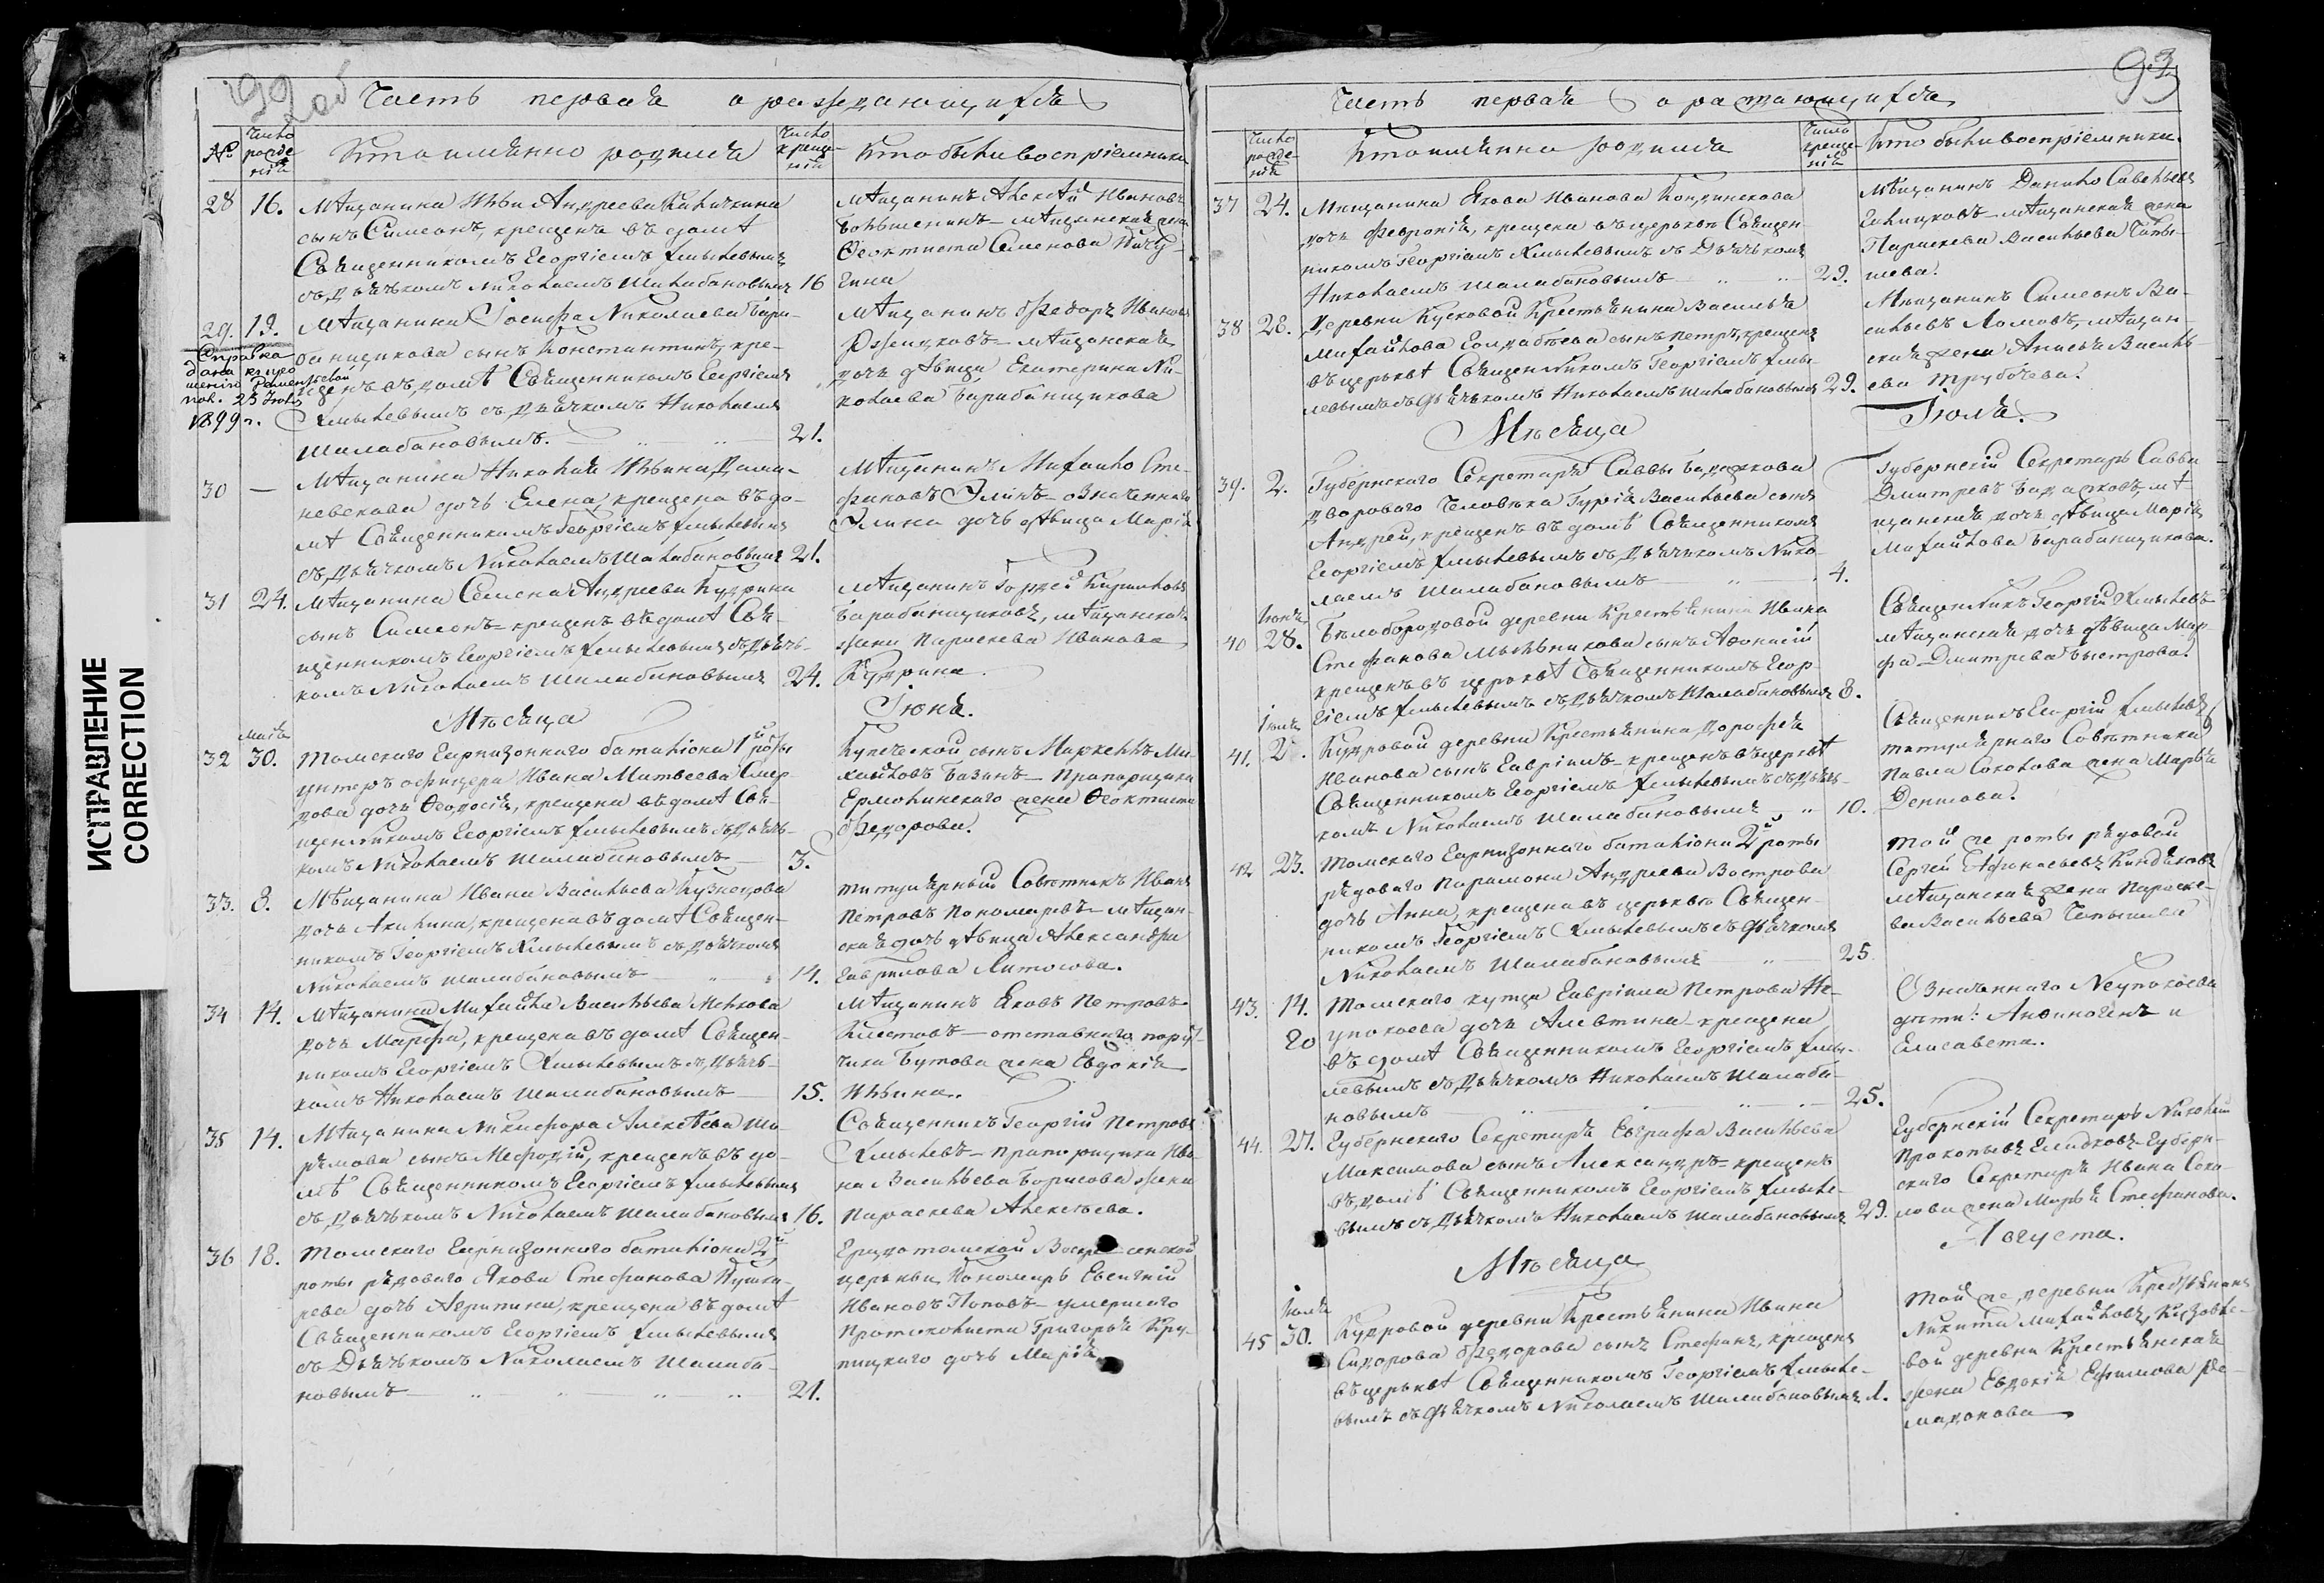 ИСПРАВЛЕНИЕ
CORRECTION
92 об
Часть первая о раждающихся
№
Число рожде-нія
Кто имянно родился
Число креще-нія
Кто были воспріемники
28 16. Мѣщанина Ильи Андреева
сынъ Симеонъ, крещенъ въ домѣ
Священникомъ Георгіемъ Хмылевымъ
съ дьячкомъ Николаемъ Шалабановымъ 16
Мѣщанинъ Алексѣй Ивановъ
мѣщанская жена
Ѳеоктиста Семенова
29. 19. Мѣщанина Іосифа Николаева Бара-
банщикова сынъ Константинъ, кре-
щенъ въ домѣ Священникомъ Георгіемъ
Хмылевымъ съ дьячкомъ Николаемъ
Шалабановымъ. 21.
Справка
дана
25 Іюля
1899 г.
Мѣщанинъ Федоръ Ивановъ
мѣщанская
дочь дѣвица Екатерина Ни-
колаева Барабанщикова
30 — Мѣщанина Николая Ильина
дочь Елена, крещена въ до-
мѣ Священникомъ Георгіемъ Хмылевымъ
съ дьячкомъ Николаемъ Шалабановымъ 21.
Мѣщанинъ Михайло Сте-
фановъ Элинъ означеннаго
Элина дочь дѣвица Марія
31 24. Мѣщанина Семена Андреева Кудрина
сынъ Симеонъ крещенъ въ домѣ Свя-
щенникомъ Георгіемъ Хмылевымъ съ дьяч-
комъ Николаемъ Шалабановымъ 24.
Мѣщанинъ Гордей Кириловъ
Барабанщиковъ, мѣщанская
жена Параскева Иванова
Кудрина.
Мѣсяца Іюня.
Мая
32 30. Томскаго Гарнизоннаго баталіона 1й роты
унтеръ офицера Ивана Матвеева
дочь Ѳеодосія, крещена въ домѣ Свя-
щенникомъ Георгіемъ Хмылевымъ съ дьяч-
комъ Николаемъ Шалабановымъ 3.
Купеческой сынъ Маркеллъ Ми-
хайловъ Базинъ Прапорщика
Ермолинскаго жена Ѳеоктиста
Федорова.
33. 8. Мѣщанина Ивана Васильева Кузнецова
дочь Акилина, крещена въ домѣ Священ-
никомъ Георгіемъ Хмылевымъ съ дьячкомъ
Николаемъ Шалабановымъ 14.
Титулярный Совѣтникъ Иванъ
Петровъ Пономаревъ мѣщан-
ская дочь дѣвица Александра
Гаврилова
34 14. Мѣщанина Михайла Васильева Мелкова
дочь Марфа, крещена въ домѣ Священ-
никомъ Георгіемъ Хмылевымъ съ дьяч-
комъ Николаемъ Шалабановымъ 15.
Мѣщанинъ Яковъ Петровъ
отставнаго пору-
чика Бутова жена Евдокія
Ильина.
35 14. Мѣщанина Никифора Алексѣева
сынъ Мефодій, крещенъ въ до-
мѣ Священникомъ Георгіемъ Хмылевымъ
съ дьячкомъ Николаемъ Шалабановымъ 16.
Священникъ Георгій Петровъ
Хмылевъ прапорщика Ива-
на Васильева Борисова жена
Параскева Алексѣева.
36 18. Томскаго Гарнизоннаго баталіона 2й
роты рядоваго Якова Стефанова
дочь Агрипина, крещена въ домѣ
Священникомъ Георгіемъ Хмылевымъ
съ Дьячкомъ Николаемъ Шалаба-
новымъ 21.
Градотомской Воскресенской
церькви Пономарь Евсигній
Ивановъ Поповъ умершаго
Протоколиста Григорья Кру-
пицкаго дочь Марія.
93
Часть первая о раждающихся
Число рожде-нія
Кто имянно родился
Число креще-нія
Кто были воспріемники.
37 24. Мещанина Якова Иванова
дочь Февронія, крещена въ церькви Священ-
никомъ Георгіемъ Хмылевымъ съ Дьячькомъ
Николаемъ Шалабановымъ 29.
Мѣщанинъ Данило Савельевъ
мѣщанская жена
Параскева Васильева
38 28. Деревни Кусковой Крестьянина Василья
Михайлова сынъ Петръ, крещенъ
въ церьквѣ Священникомъ Георгіемъ Хмы-
левымъ съ Дьячькомъ Николаемъ Шалабановымъ 29.
Мѣщанинъ Симеонъ Ва-
сильевъ Ломовъ, мѣщан-
ская жена Анисья Василь-
ева Трубачева.
Мѣсяца Іюля.
39. 2. Губернскаго Секретаря Саввы
двороваго Человѣка Гурія Васильева сынъ
Андрей, крещенъ въ домѣ Священникомъ
Георгіемъ Хмылевымъ съ Дьячькомъ Нико-
лаемъ Шалабановымъ 4.
Губернскій Секретарь Савва
Дмитревъ мѣ-
щанская дочь дѣвица Марія
Михайлова Барабанщикова.
Іюня
40 28. Белобородовой деревни Крестьянина Ивана
Стефанова Мыльникова сынъ Аѳонасій
крещенъ въ церьквѣ Священникомъ Геор-
гіемъ Хмылевымъ съ Дьячкомъ Шалабановымъ 8.
Священникъ Георгій Хмылевъ
мѣщанская дочь дѣвица Мар-
фа Дмитрева Быстрова.
Іюля
41. 2. Кудровой деревни Крестьянина Дорофея
Иванова сынъ Гавріилъ крещенъ въ церьквѣ
Священникомъ Георгіемъ Хмылевымъ съ Дьяч-
комъ Николаемъ Шалабановымъ 10.
Священникъ Георгій Хмылевъ
титулярнаго Совѣтника
Павла Соколова жена Марья
Денисова.
42 23. Томскаго Гарнизоннаго баталіона 2й роты
рядоваго Парамона Андреева Вострова
дочь Анна, крещена въ церькви Священ-
никомъ Георгіемъ Хмылевымъ съ дьячкомъ
Николаемъ Шалабановымъ 25
Той же роты рядовой
Сергей Афонасьевъ Киндяковъ
мѣщанская жена Параске-
ва Васильева
43. 14. Томскаго купца Гавріила Петрова Не-
20 упокоева дочь Алевтина крещена
въ домѣ Священникомъ Георгіемъ Хмы-
левымъ съ Дьячкомъ Николаемъ Шалаба-
новымъ 25.
Означеннаго Неупокоева
дѣти: Аѳиногенъ и
Елисавета.
44. 27. Губернскаго Секретаря Евграфа Васильева
Максимова сынъ Александръ крещенъ
въ домѣ Священникомъ Георгіемъ Хмыле-
вымъ съ Дьячкомъ Николаемъ Шалабановымъ 29.
Губернскій Секретарь Николай
Прокопьевъ Губерн-
скаго Секретаря Ивана Соко-
лова жена Марья Стефанова.
Мѣсяца Августа.
Іюля
45 30. Кудровой деревни Крестьянина Ивана
Сидорова Федорова сынъ Стефанъ, крещенъ
въ церьквѣ Священникомъ Георгіемъ Хмыле-
вымъ съ дьячкомъ Николаемъ Шалабановымъ 1.
Той же деревни Крестьянинъ
Никита Михайловъ,
вой деревни Крестьянская
жена Евдокія Ефимова